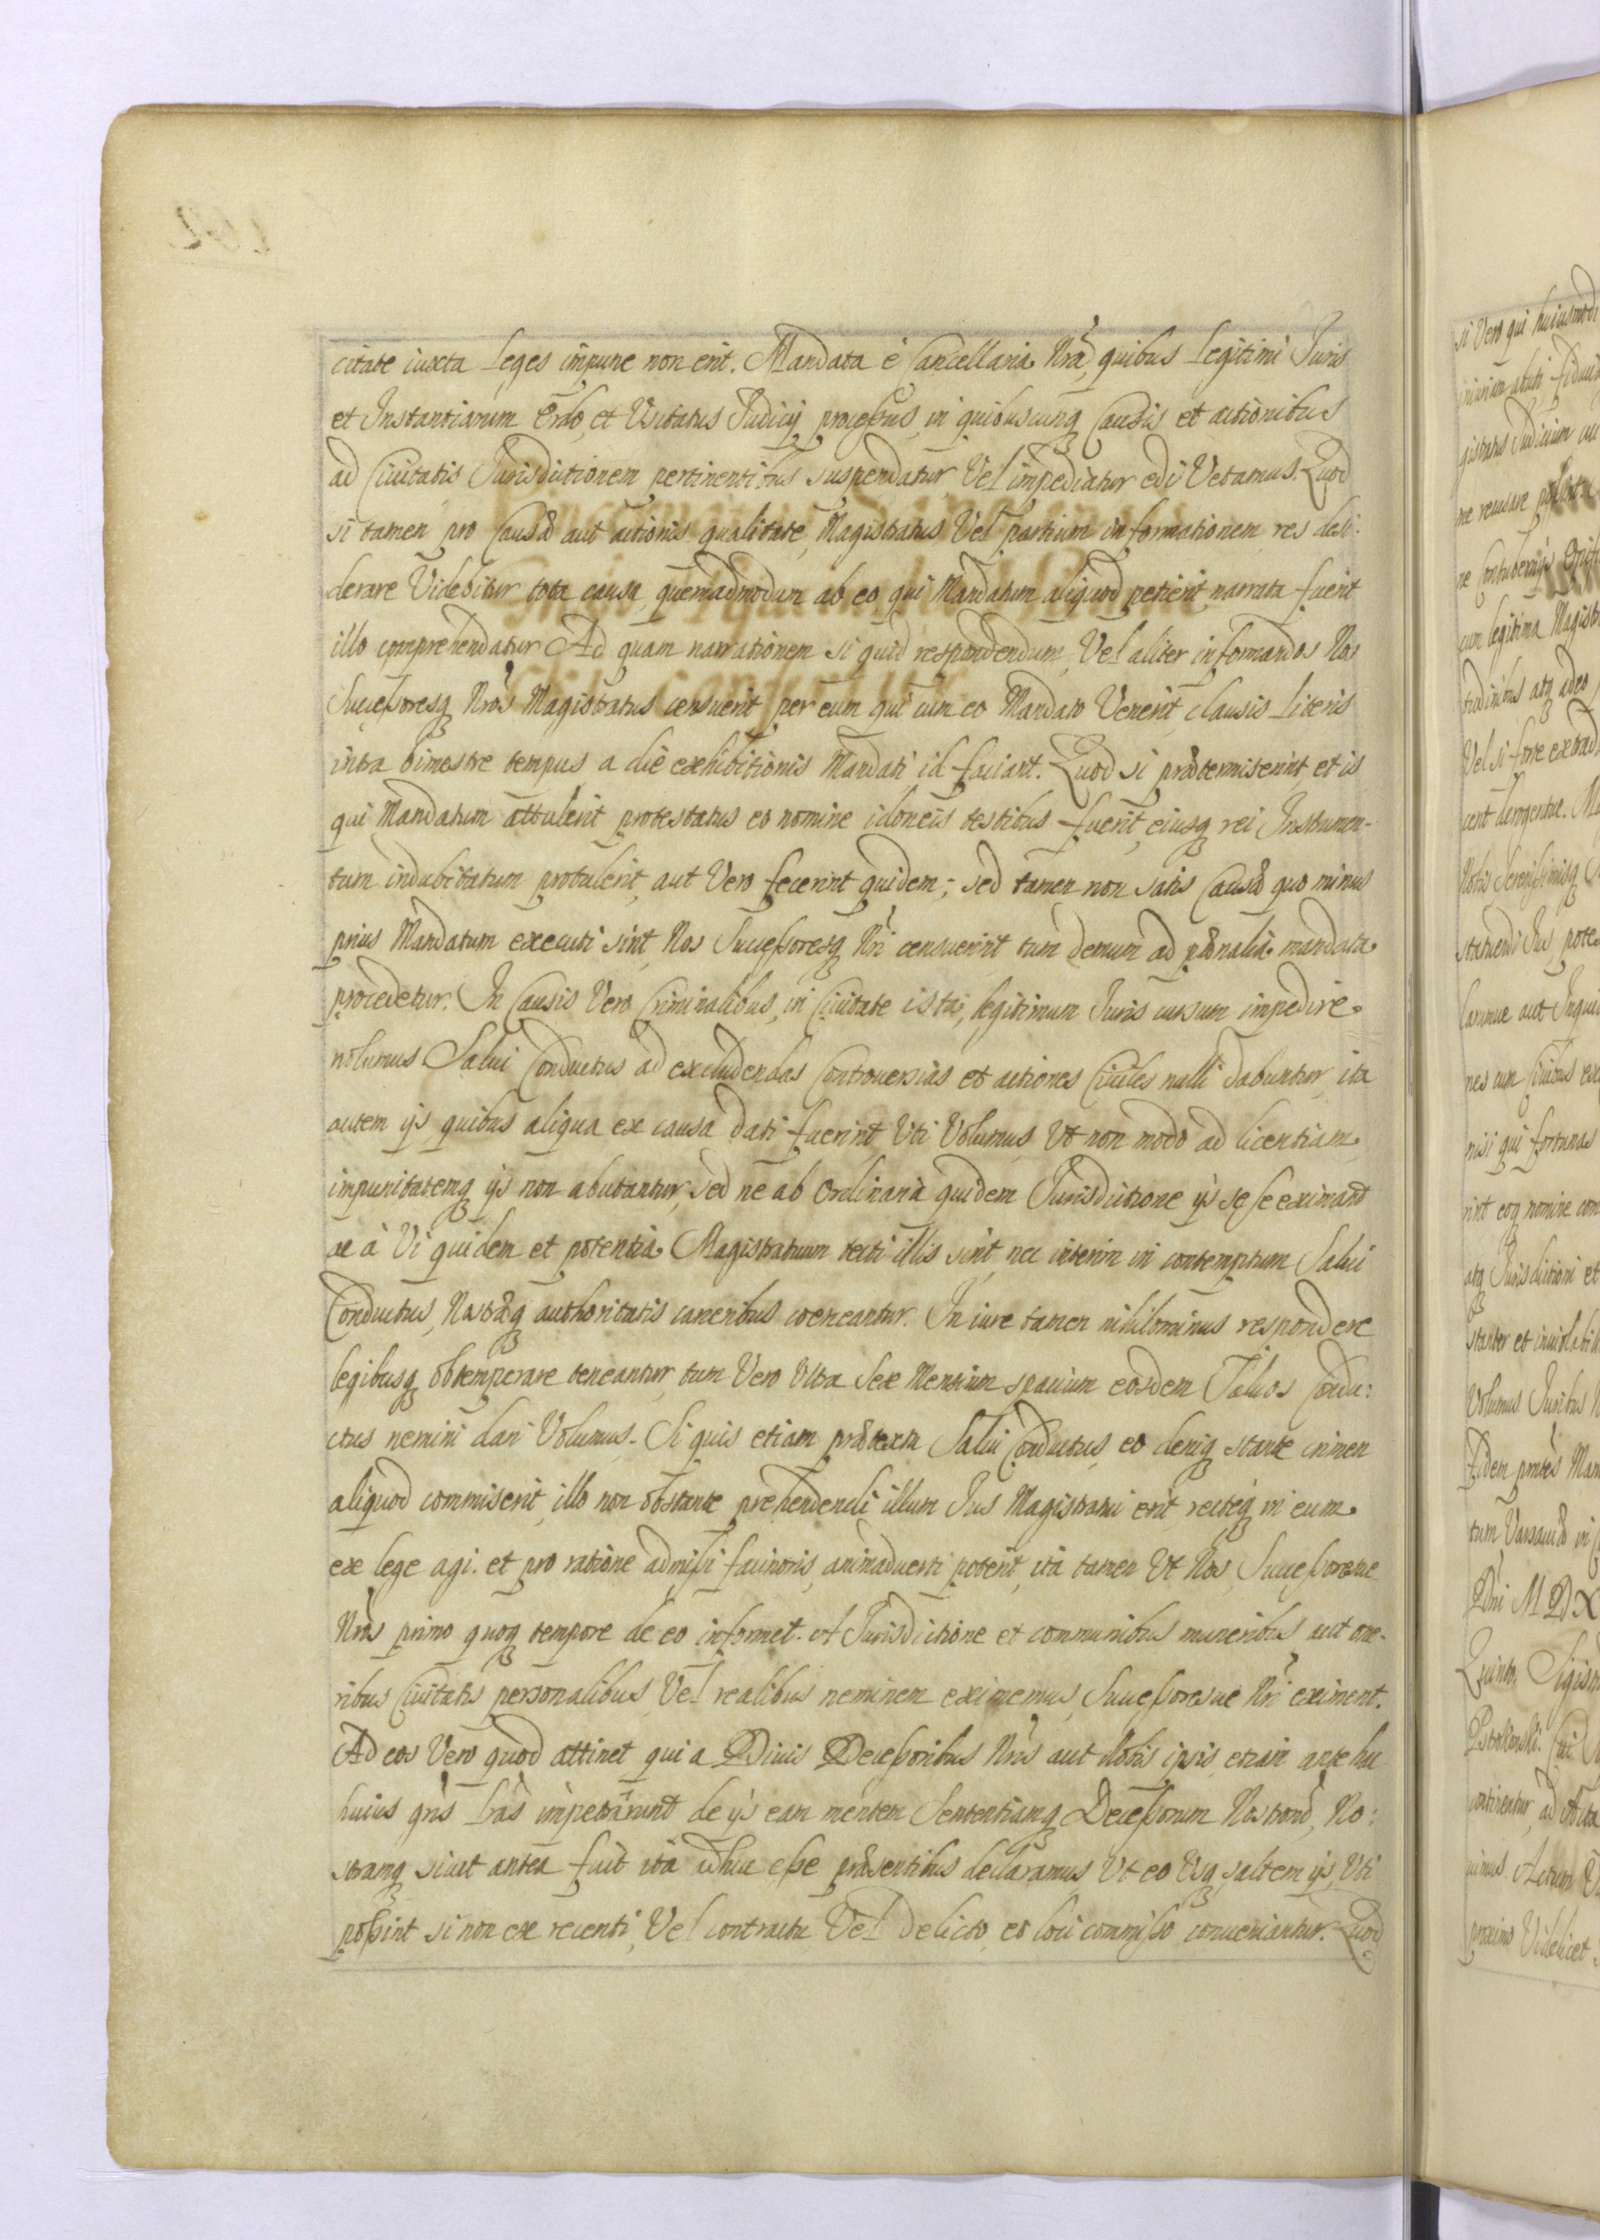 citate iuxta Leges impune non erit. Mandata è Cancellaria Nrã, quibus Legitimi Iuris
et Instantiarum Ordo, et Usitatus Iudicij processus, in quibuscunq Causis et actionibus
ad Ciuitatis Iurisdictionem pertinentibus suspendatur, Vel impediatur edi Vetamus. Quod
si tamen pro Causæ aut actionis qualitate, Magistratus Vel partium informationem res desi:
derare Videbitur tota causa, quemadmodum ab eo qui Mandatum aliquod petierit, narrata fuerit
illo comprehendatur Ad quam narrationem si quid respondendum, Vel aliter informandos Nos
Successoresq Nros Magistratus censuerit per eum qui cum eo Mandato Venerit clausis Literis
intra bimestre tempus a die exhibitionis Mandati id faciant. Quod si prætermiserint, et is
qui Mandatum attulerit protestatus eo nomine idoneis testibus fuerit, eiusq rei Instrumen-
tum indubitatum protulerit, aut Vero fecerint quidem; sed tamen non satis Causæ quo minus
prius Mandatum executi sint, Nos Successoresq Nri censuerint tum demum ad pænalia mandata
procedetur. In Causis Vero Criminalibus, in Ciuitate ista, legitimum Iuris cursum impedire
nolumus. Salui Conductus ad excludendas Controuersias et actiones Ciuiles nulli dabuntur, ita
autem ijs quibus aliqua ex causa dati fuerint, Uti Volumus, Ut non modo ad licentiam
impunitatemq ijs non abutantur, sed ne ab Ordinaria quidem Iurisdictione ijs se se eximant
ac à Vi quidem et potentia Magistratuum tecti illis sint, nec interim in contemptum Salui
Conductus, Nostræq authoritatis carceribus coerceantur. In iure tamen nihilominus respondere
legibusq obtemperare teneantur, tum Vero Ultra Sex Mensium spacium eosdem Saluos Condu:
ctus nemini dari Volumus. Si quis etiam prætextu Salui Conductus, eo deniq stante crimen
aliquod commiserit, illo non obstante prehendendi illum Ius Magistratui erit, recteq in eum
ex lege agi. et pro ratione admissi facinoris, animaduerti poterit, ita tamen Ut Nos, Successoresue
Nros primo quoq tempore de eo informet. A Iurisdictione et communibus muneribus aut one-
ribus Ciuitatis personalibus, Vel realibus neminem eximemus, Successoresue Nri eximent.
Ad eos Vero quod attinet qui a Diuis Decessoribus Nris aut Nobis ipsis, etiam ante hac
huius gñs Lras impetrarunt de ijs eam mentem Sententiamq Decessorum Nostrorũ, No:
stramq sicut antea fuit ita adhuc esse præsentibus declaramus Ut eo Usq saltem ijs, Uti
possint si non ex recenti, Vel contractu Vel delicto, eo loci commisso conueniantur. Quod